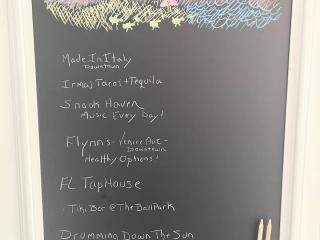 Made In Italy
Downtown
Irmas Tacos + Tequila
Snook Haven
Music Every Day!
Flynn's - Venice Ave -
Downtown
Healthy Options!
FL TapHouse
Tiki Bar @ The Ball Park
Drumming Down The Sun